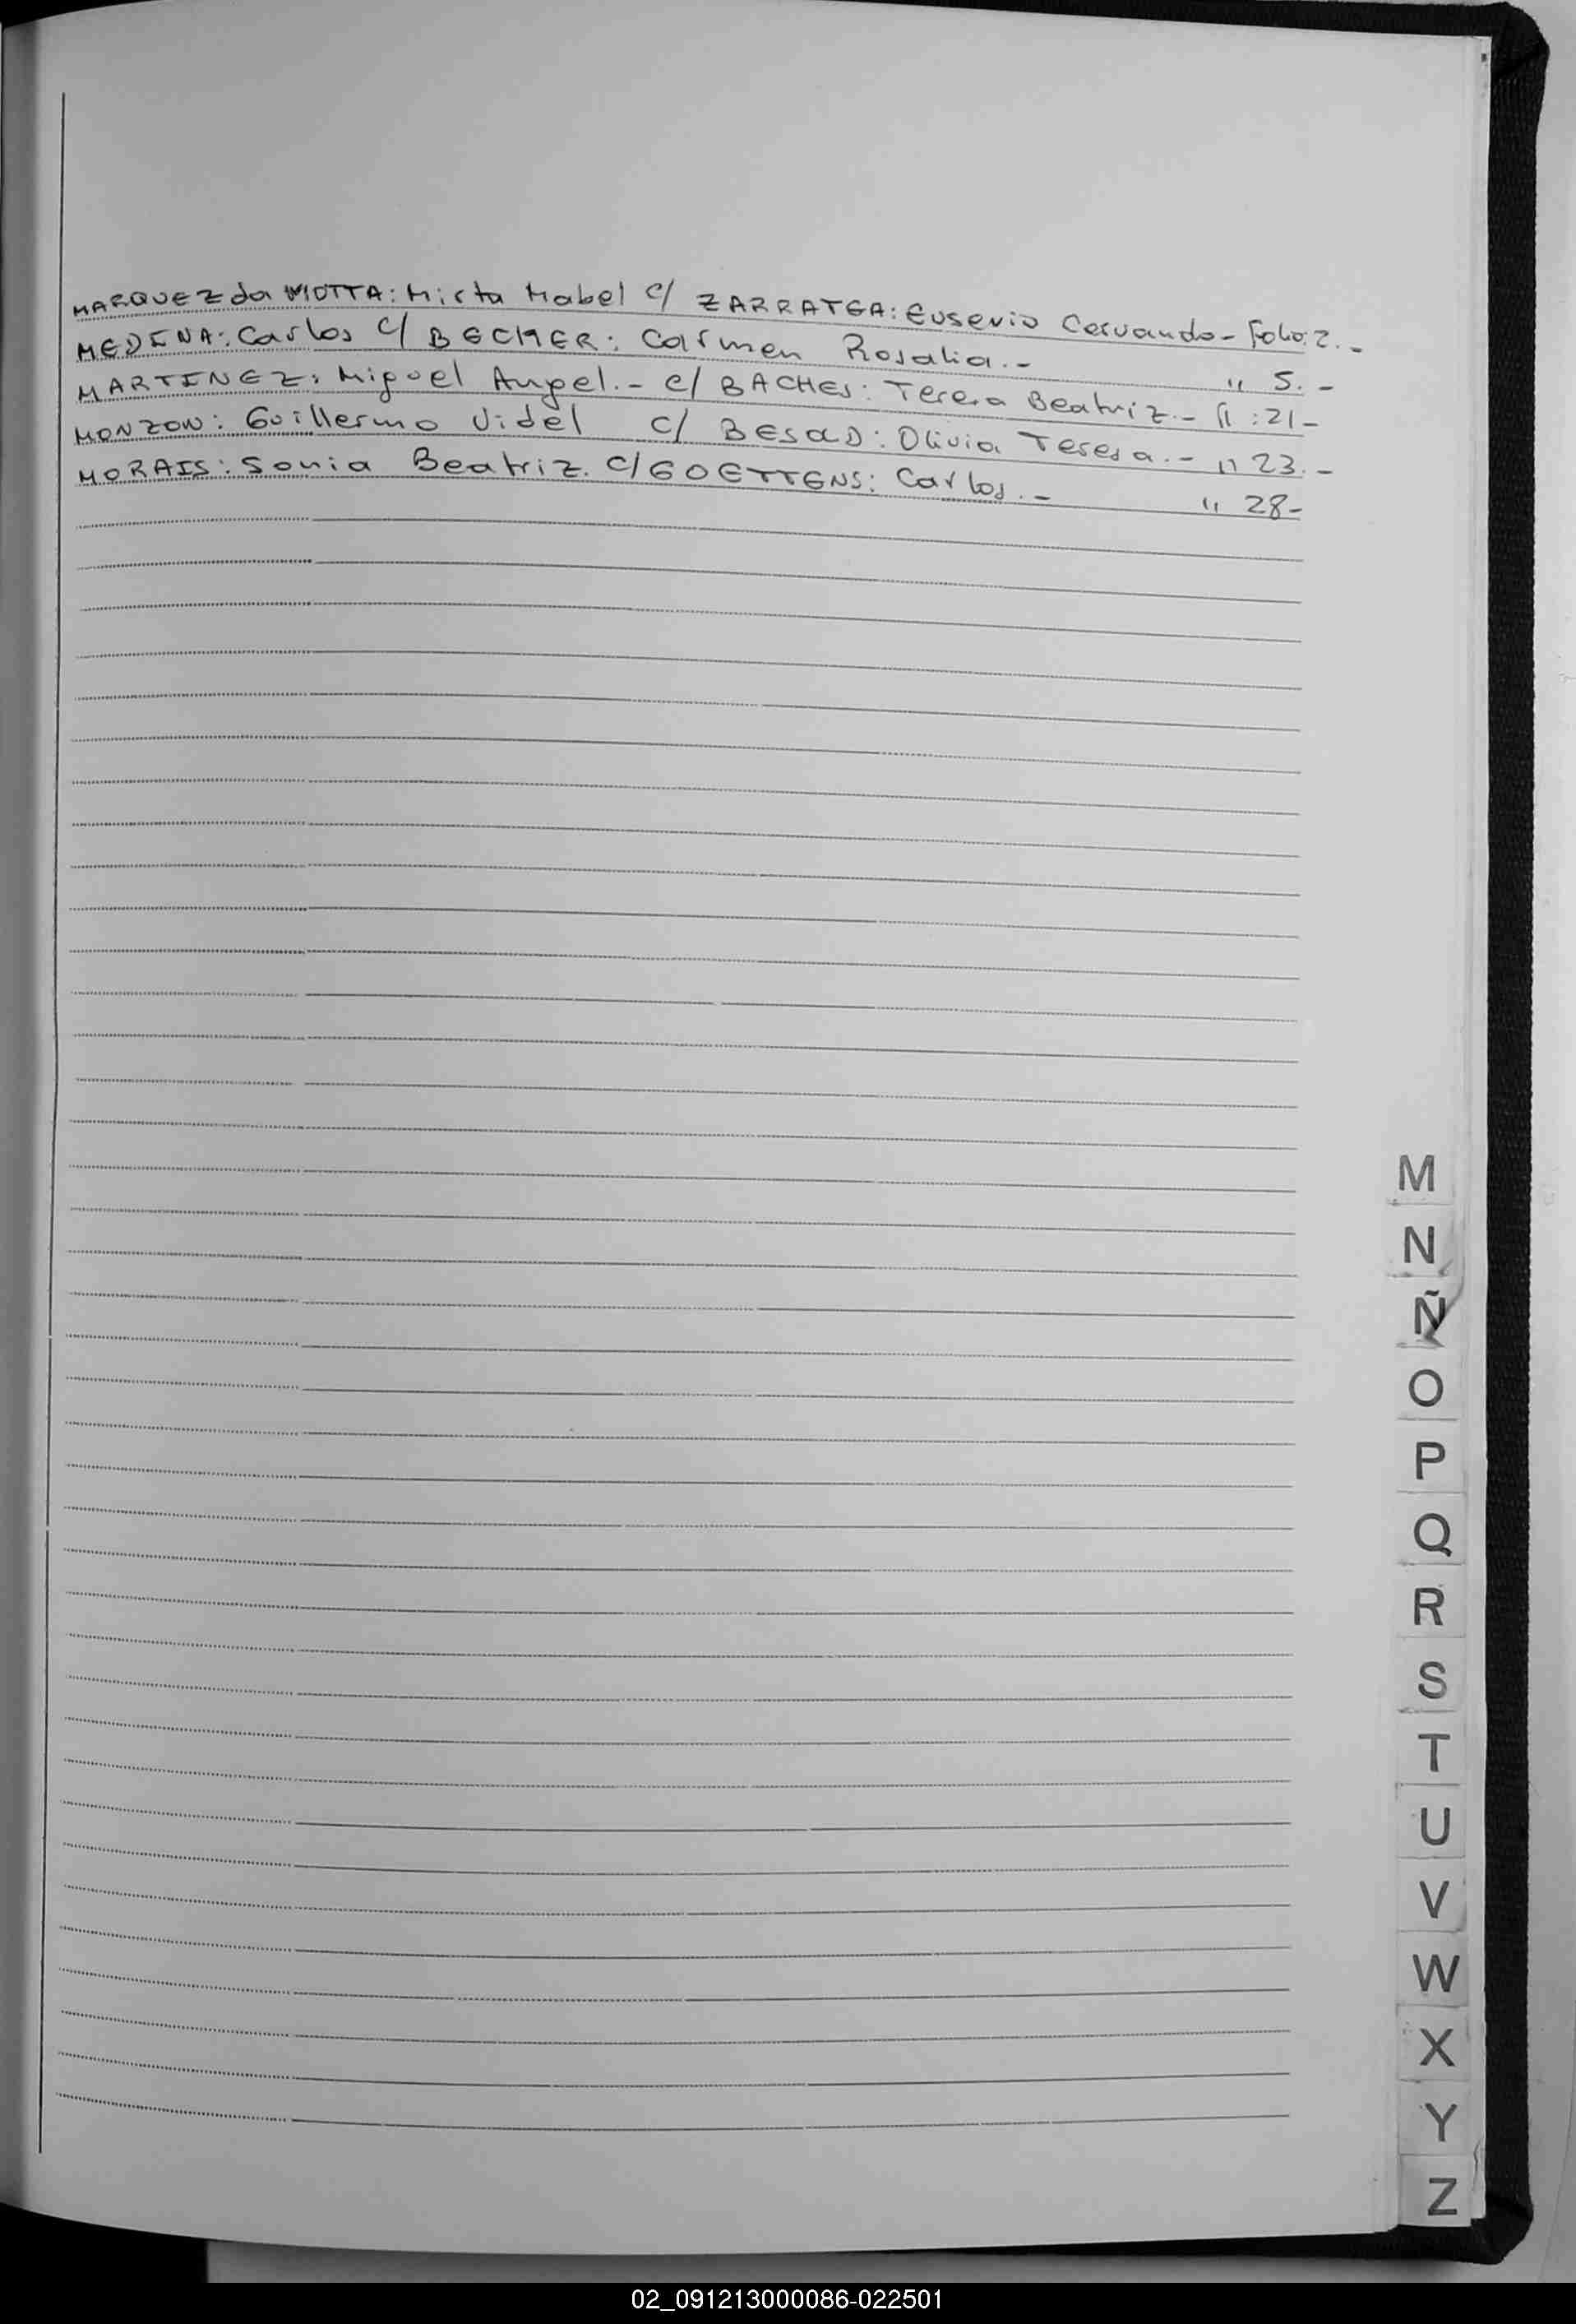 MARQUEZ da MOTTA: Mirta Mabel c/ ZARRATEA: Eusevio Cervando - Folio: 2. -
MEDINA: Carlos c/ BECHER: Carmen Rosalia. - " 5. -
MARTINEZ: Miguel Angel. - c/ BACHES: Teresa Beatriz. - " : 21 -
MONZON: Guillermo Videl c/ : Olivia Teresa. - " 23. -
MORAIS: Sonia Beatriz. c/ GOETTENS: Carlos. - " 28 -
M
N
Ñ
O
P
Q
R
S
T
U
V
W
X
Y
Z
02_091213000086-022501